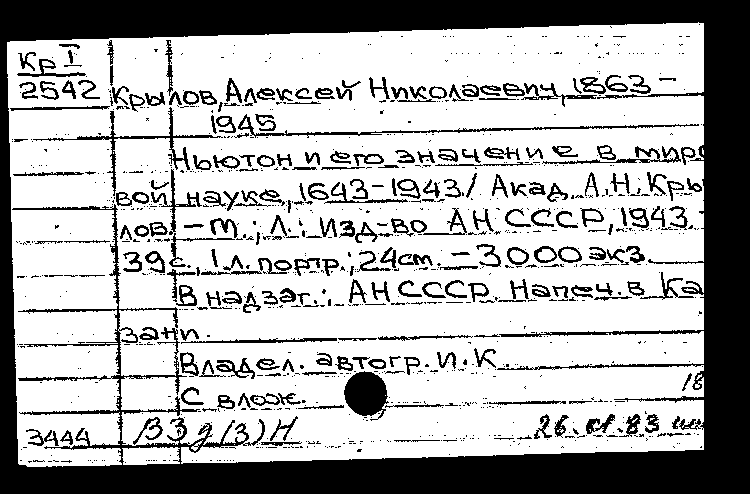 Кр I
2542 Крылов, Алексей Николаевич, 1863-
1945
Ньютон и его значение в миро
вой науке, 1643-1943/ Акад. А.Н. Кры
лов. - М.; Л.: Изд-во АН СССР, 1943. -
39 с., 1 л. портр.; 24 см. - 3000 экз.
В надзаг.: АН СССР. Напеч. в Ка
зани.
Владел. автогр. И. К.
С влож.
18
3444 В3д(3)Н 26.XI.83